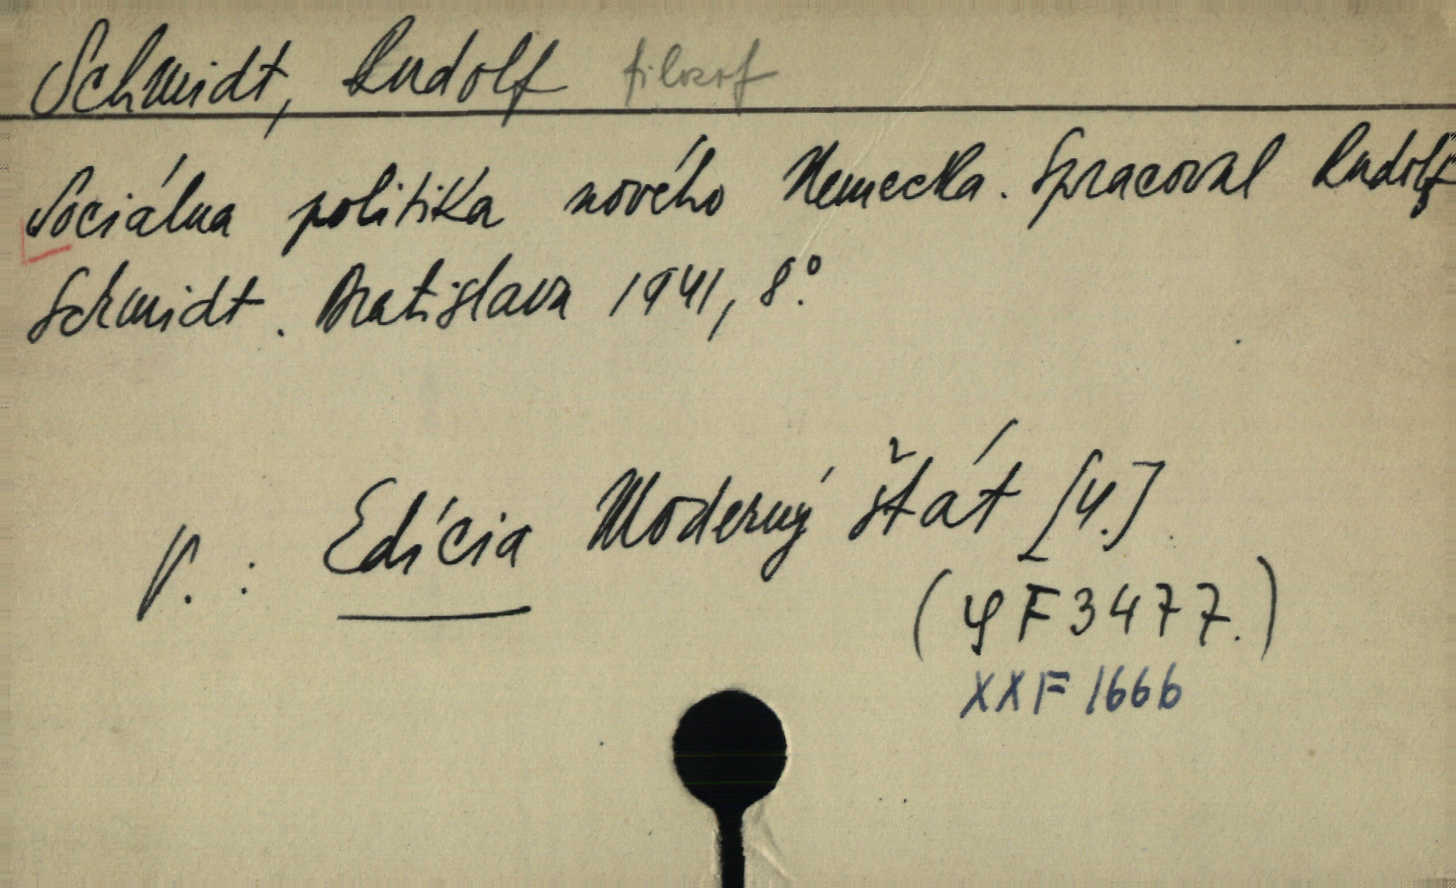 Schmidt, Rudolf filozof
Sociálna politika nového Nemecka. Spracoval Rudolf
Schmidt. Bratislava 1941, 8.°
V.: Edícia Moderný štát [4.]
(φ F 3477.)
XX F 1666